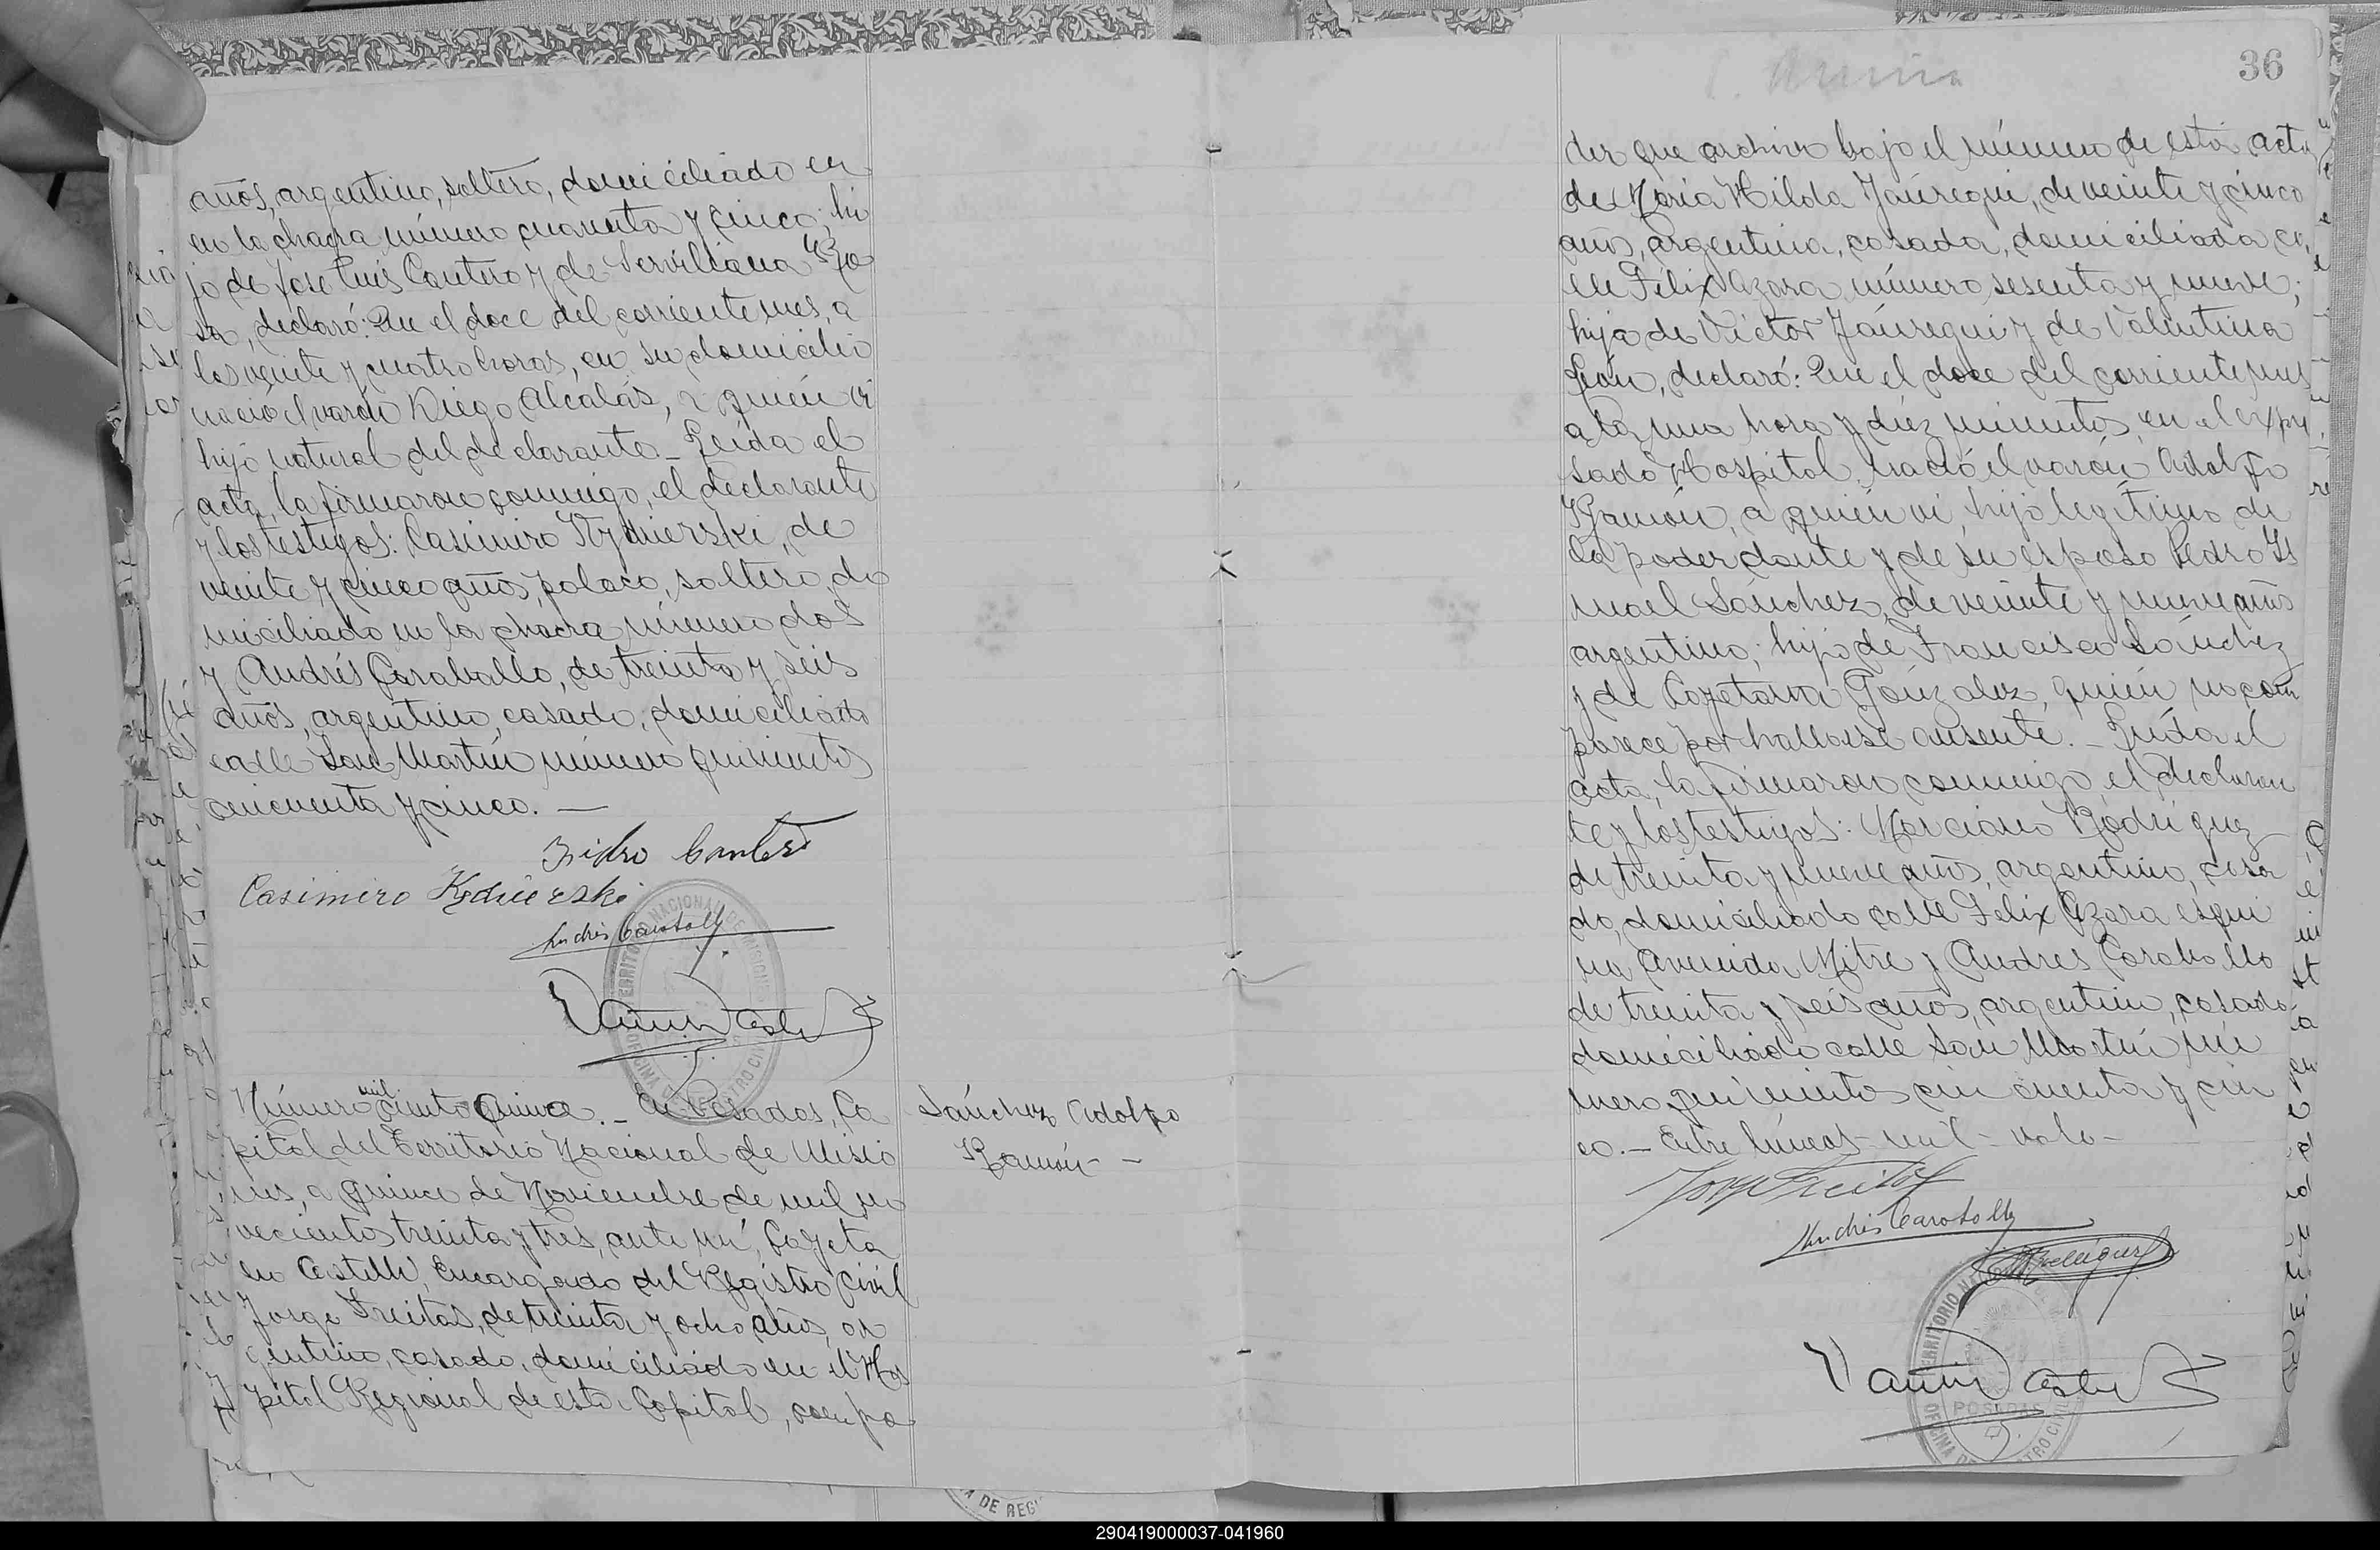 años, argentino, soltero, domiciliado en
en la chacra número cuarenta y cinco; hi
jo de José Luis Cantero y de Serviliana
sa, declaró: Que el doce del corriente mes, a
las veinte y cuatro horas, en su domicilio
nació el varón Diego Alcalás, a quién vi
hijo natural del declarante._ Leída el
acta, la firmaron conmigo, el declarante
y los testigos: Casimiro, de
veinte y cinco años, polaco, soltero, do
miciliado en la chacra número dos
y Andrés Caraballo, de treinta y seis
años, argentino, casado, domiciliado
calle San Martín número quinientos
cincuenta y cinco. —
Isidro Cantero
Casimiro
Andrés Caraballo
Número mil ciento quince._ En Posadas, Ca
pital del Territorio Nacional de Misio
nes, a quince de Noviembre de mil no
vecientos treinta y tres, ante mí, Cayeta
no Castelli, Encargado del Registro Civil
Jorge Freitas, de treinta y ocho años, ar
gentino, casado, domiciliado en el Hos
pital Regional de esta Capital, con po
Sánchez Adolfo
Ramón - –
36
der que archivo bajo el número de esta acta
de María Hilda Jáuregui, de veinte y cinco
años, argentina, casada, domiciliada ca
lle Félix Azara número sesenta y nueve;
hija de Víctor Jáuregui y de Valentina
León, declaró: Que el doce del corriente mes
a la una hora y diez minutos, en el expre
sado Hospital, nació el varón Adolfo
Ramón, a quién vi, hijo legítimo de
la poderdante y de su esposo Pedro Is
mael Sánchez, de veinte y nueve años
argentino; hijo de Francisco Sánchez
y de Cayetana González, quién no com
parece por hallarse ausente._ Leída el
acta, la firmaron conmigo, el declaran
te y los testigos: Marciano Rodríguez
de treinta y nueve años, argentino, casa
do, domiciliado calle Félix Azara esqui
na Avenida Mitre y Andrés Caraballo
de treinta y seis años, argentino, casado
domiciliado calle San Martín nú
mero quinientos cincuenta y cin
co.— Entre líneas – mil – vale –
Jorge Freitas
Andrés Caraballo
POSADAS
A DE REG
290419000037-041960